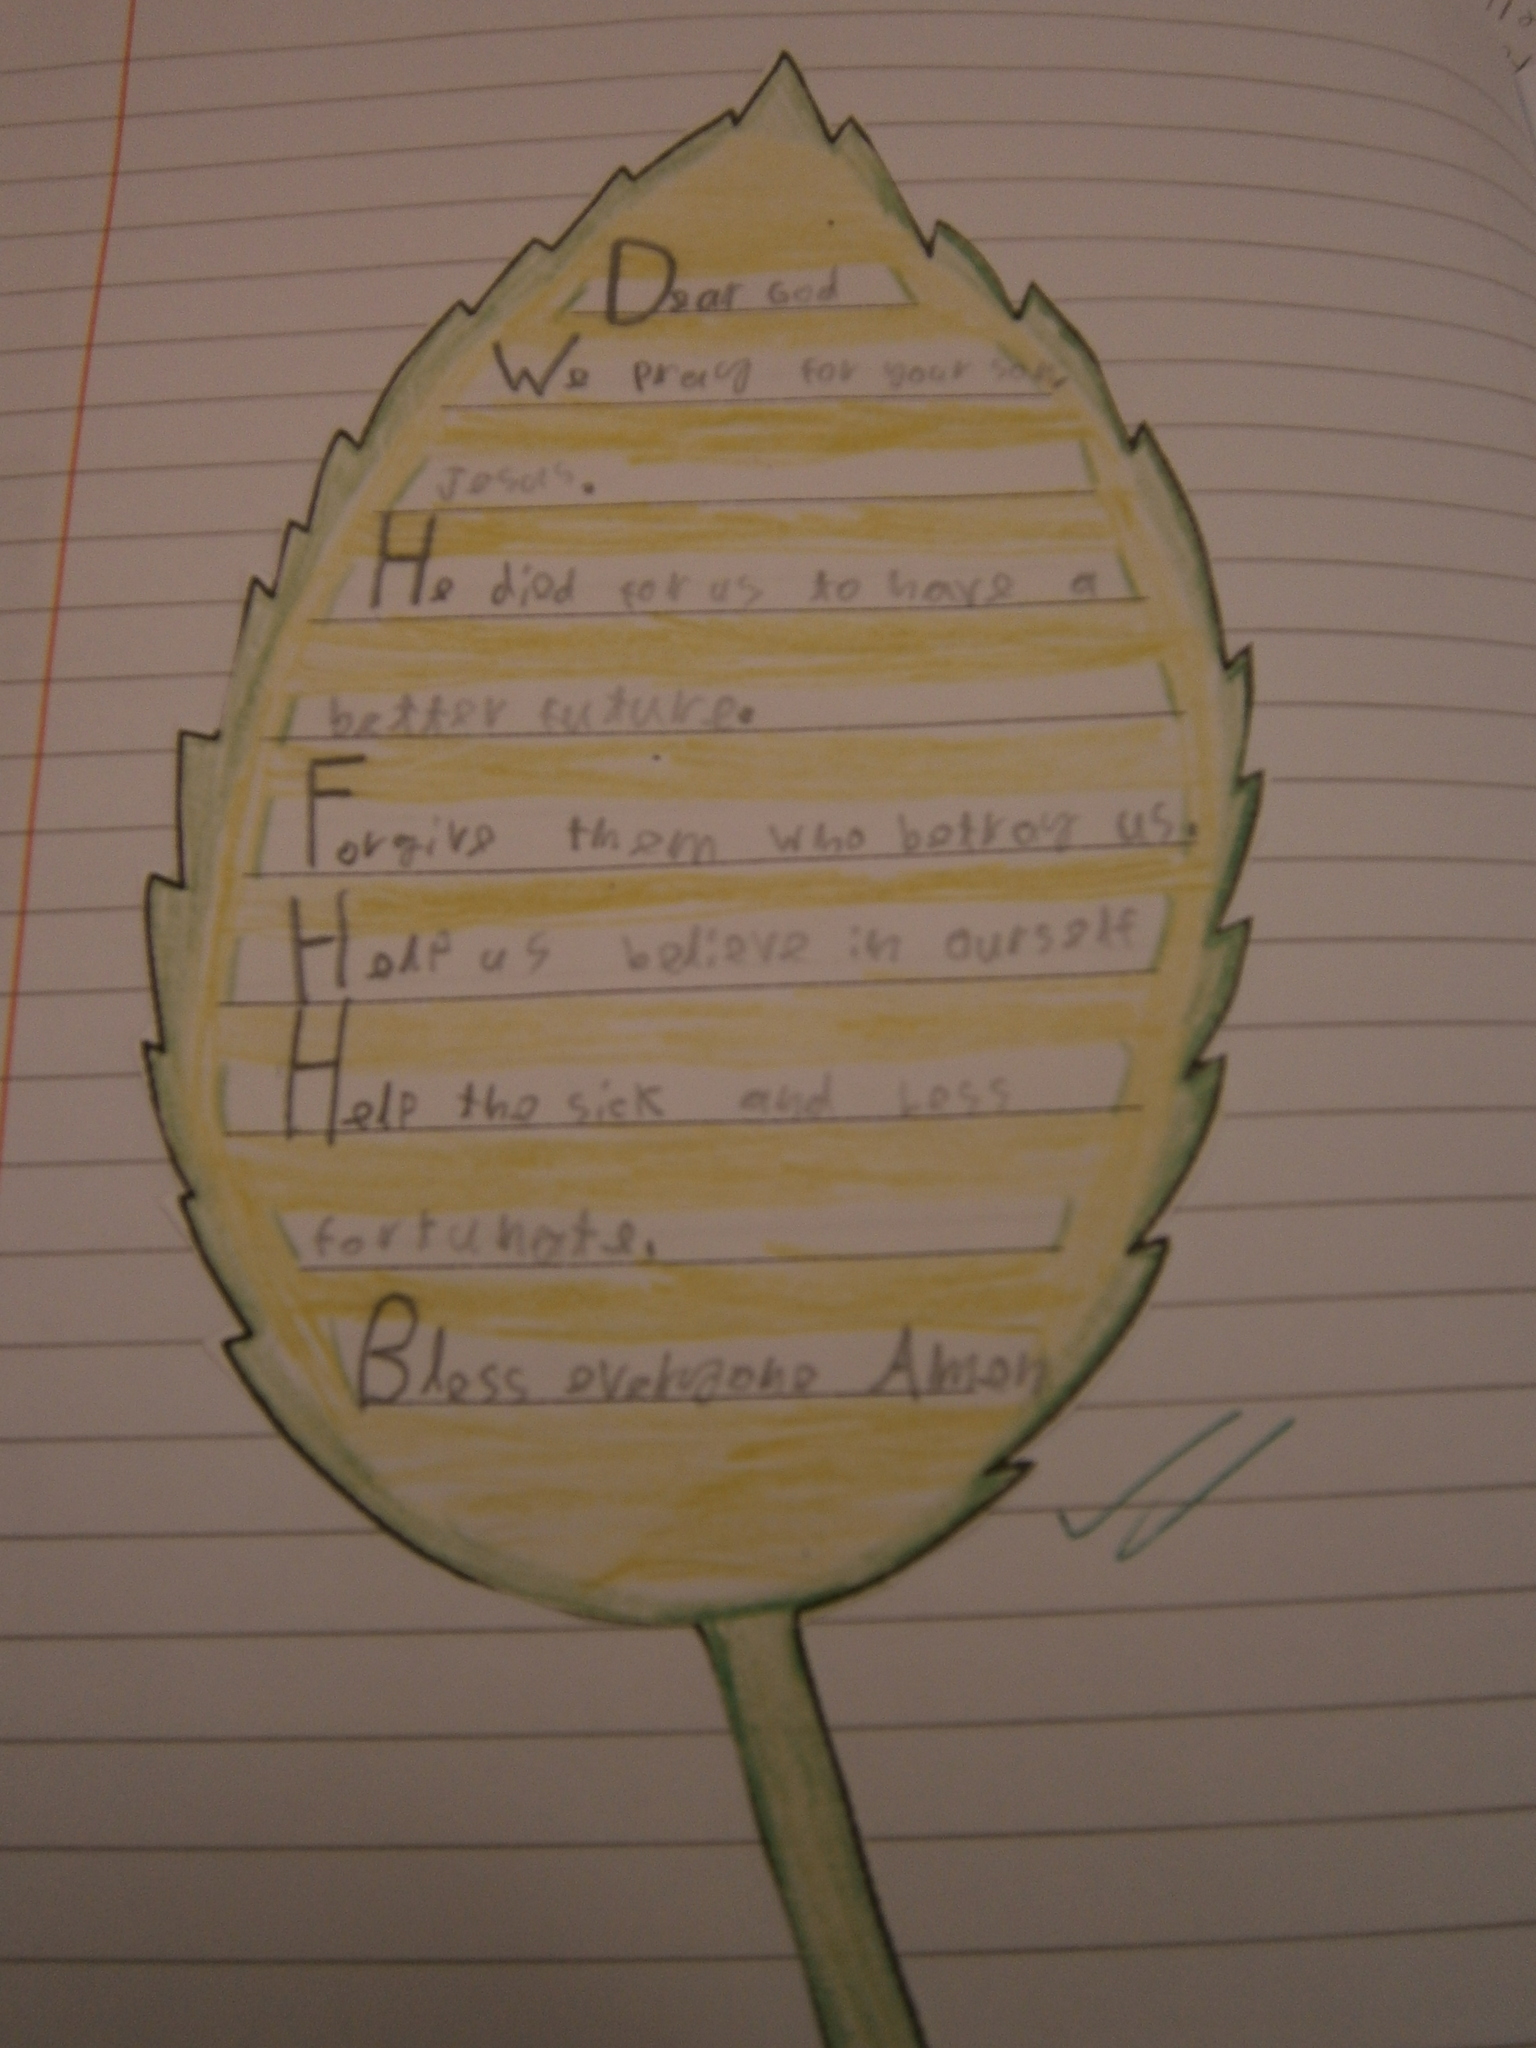 Dear God
We pray for your son,
Jesus.
He died for us to have a
better future.
Forgive them who betray us.
Help us believe in ourself
Help the sick and Less
fortunate.
Bless everyone Amen